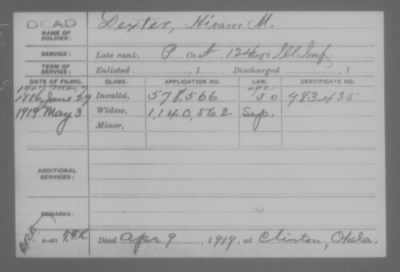 DEAD
NAME OF SOLDIER: Dexter, Hiram M.
SERVICE: Late rank, P Co. A, 124 Reg't Ill. Inf.
TERM OF SERVICE: Enlisted , 1 Discharged , 1
DATE OF FILING. CLASS. APPLICATION NO. LAW. CERTIFICATE NO.
1907 May
1886 June 29 Invalid, 578,566 983,435
1919 May 3 Widow, 1,140,562 Sep.
Minor,
ADDITIONAL SERVICES:
REMARKS:
Died Apr 9, 1919, at Clinton, Okla.